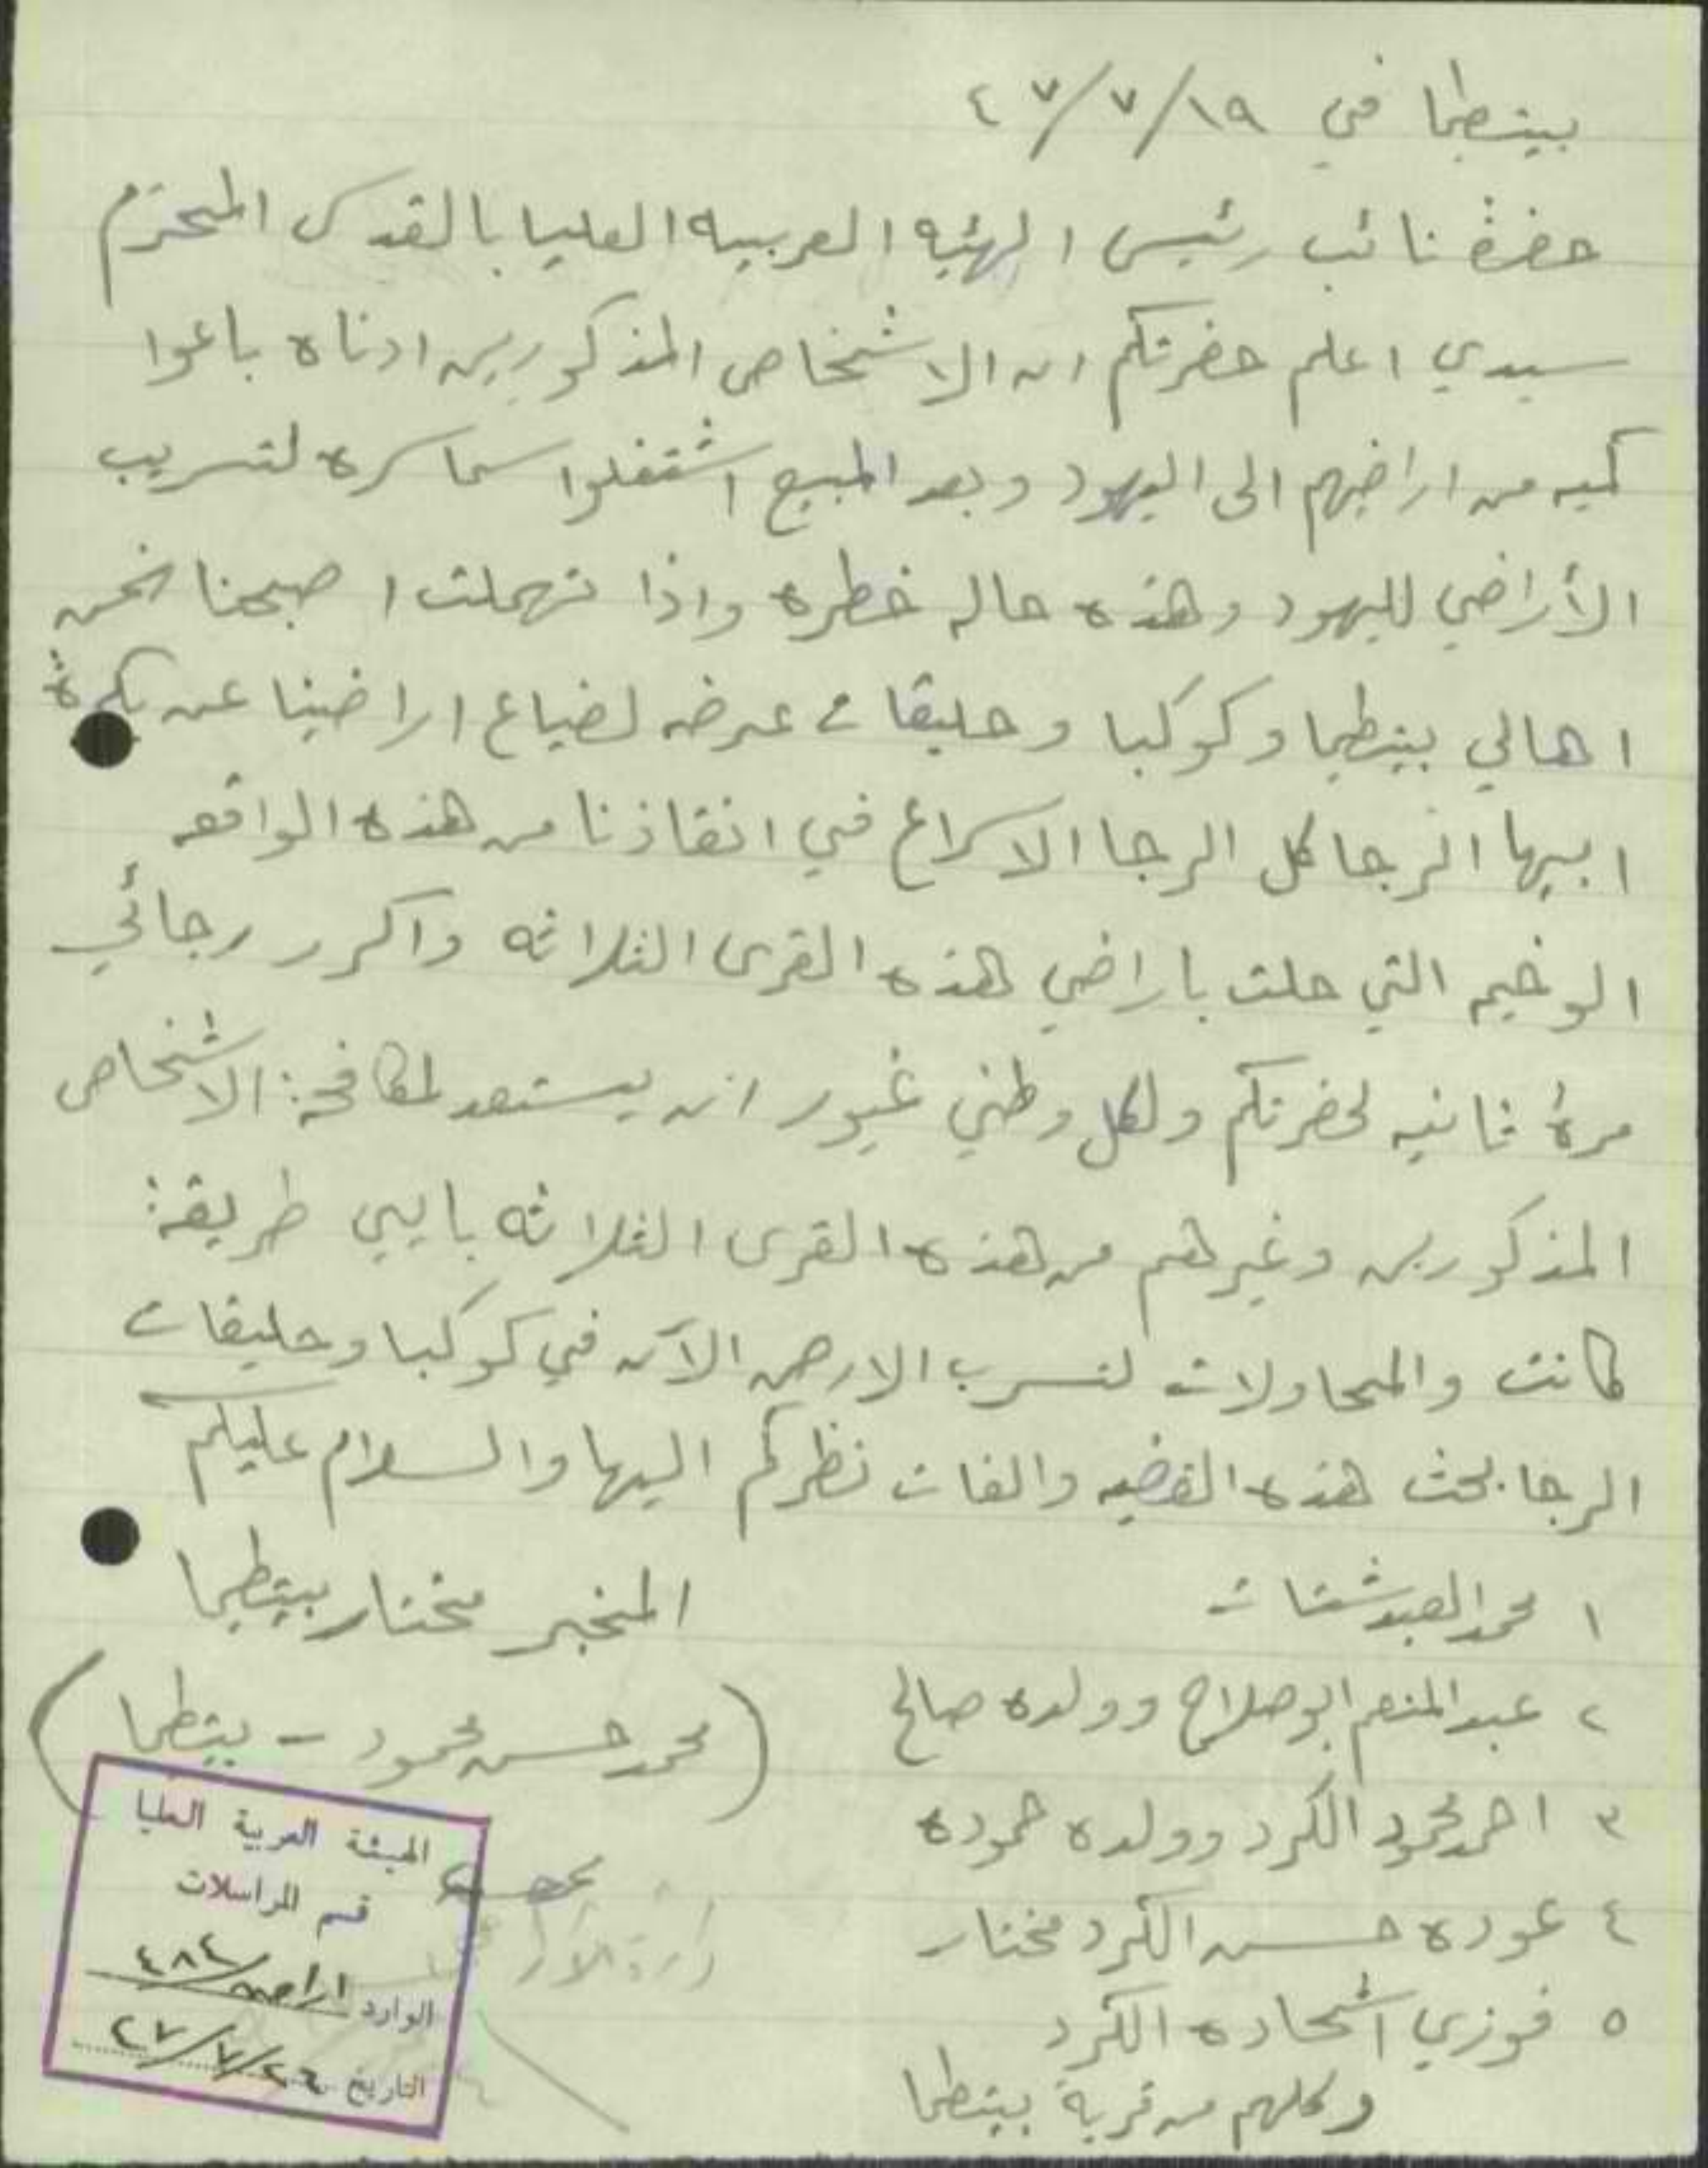 بيتطيما في ١٩/٧/٤٧
حضرة نائب رئيس الهئيه العربيه العليا بالقدس المحترم
سيدي اعلم حضرتكم ان الاشخاص المذكورين ادناه باعوا
كميه من اراضيهم الى اليهود وبعد المبيع اشتغلوا سماسره لتسريب
الأراضي لليهود وهذه حاله خطره واذا تهملت اصبحنا نحن
اهالي بيتطيما وكوكبا وحليقات عرضه لضياع اراضينا عن بكرة
ابيها الرجا كل الرجا الاسراع في انقاذنا من هذه الواقعه
الوخيمه التي حلت باراضي هذه القرى الثلاثه واكرر رجائي
مرة ثانيه لحضرتكم ولكل وطني غيور ان يستعد لمكافحة الاشخاص
المذكورين وغيرهم من هذه القرى الثلاثه بايي طريقة
كانت والمحاولات لتسرب الارض الآن في كوكبا وحليقات
الرجا بحث هذه القضيه والفات نظركم اليها والسلام عليكم
المخبر مختار بيتطيما
(محمد حسن محمود - بيتطيما)
١ محمد العبد شتات
٢ عبد المنعم ابو صلاح وولده صالح
٣ احمد محمود الكرد وولده حموده
٤ عوده حسن الكرد مختار
٥ فوزي اشحاده الكرد
وكلهم من قرية بيتطيما
الهيئة العربية العليا
قسم المراسلات
الوارد اراضي/٤٨٤
التاريخ ٢٦/٧/٤٧